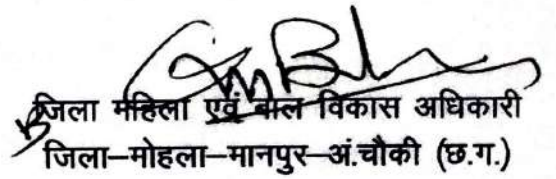 जिला महिला एवं बाल विकास अधिकारी
जिला–मोहला–मानपुर–अं.चौकी (छ.ग.)